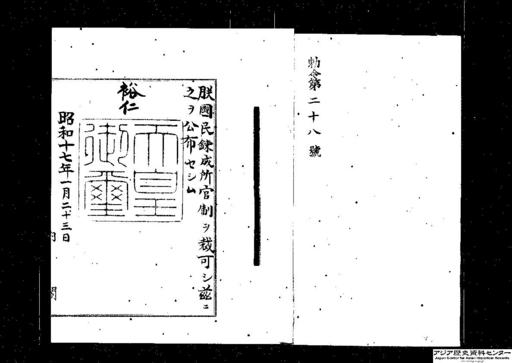 勅令第二十八號
朕國民錬成所官制ヲ裁可シ茲ニ
之ヲ公布セシム
裕仁
天皇
御璽
昭和十七年一月二十三日
内閣
アジア歴史資料センター
Japan Center for Asian Historical Records